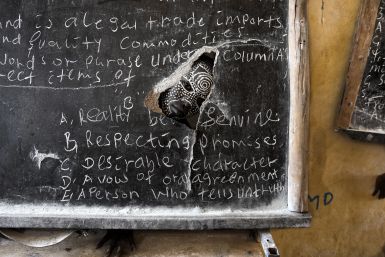 nd is a legal trade imports
and quality commodities
words or phrase under COLUMN
rect items of
B
A, Reality be Genuine
B, Respecting promises
C, Desirable character
D, A vows of or agreement
E, A person who tells untruth
MD